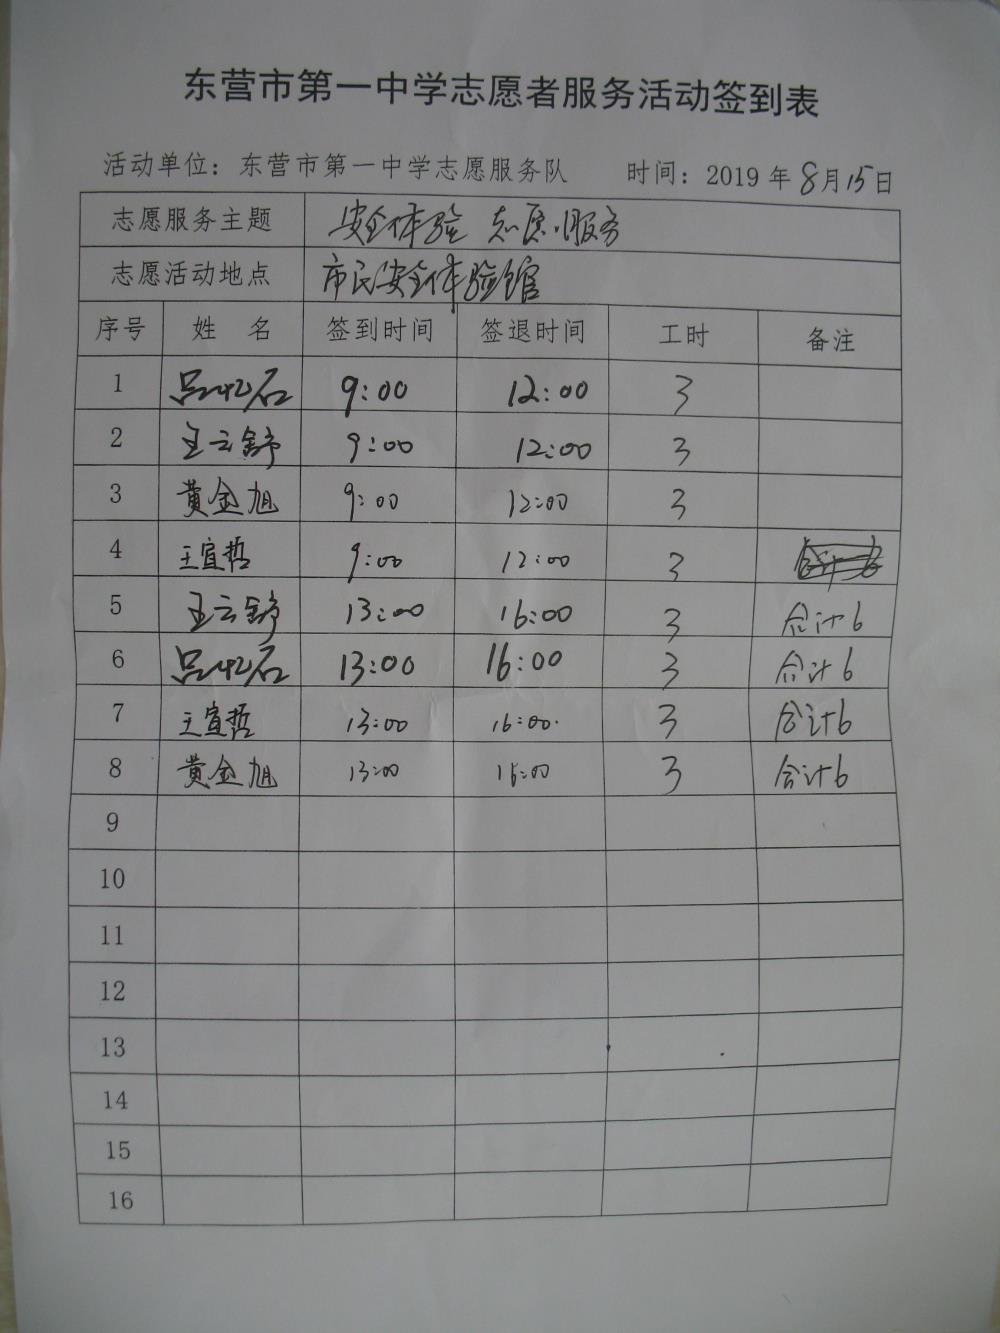 东营市第一中学志愿者服务活动签到表
活动单位：东营市第一中学志愿服务队 时间：2019年8月15日
志愿服务主题 安全体验 志愿服务
志愿活动地点 市民安全体验馆
序号 姓 名 签到时间 签退时间 工时 备注
1 吕忆石 9:00 12:00 3
2 王云舒 9:00 12:00 3
3 黄金旭 9:00 12:00 3
4 王宣哲 9:00 12:00 3
5 王云舒 13:00 16:00 3 合计6
6 吕忆石 13:00 16:00 3 合计6
7 王宣哲 13:00 16:00 3 合计6
8 黄金旭 13:00 16:00 3 合计6
9
10
11
12
13
14
15
16